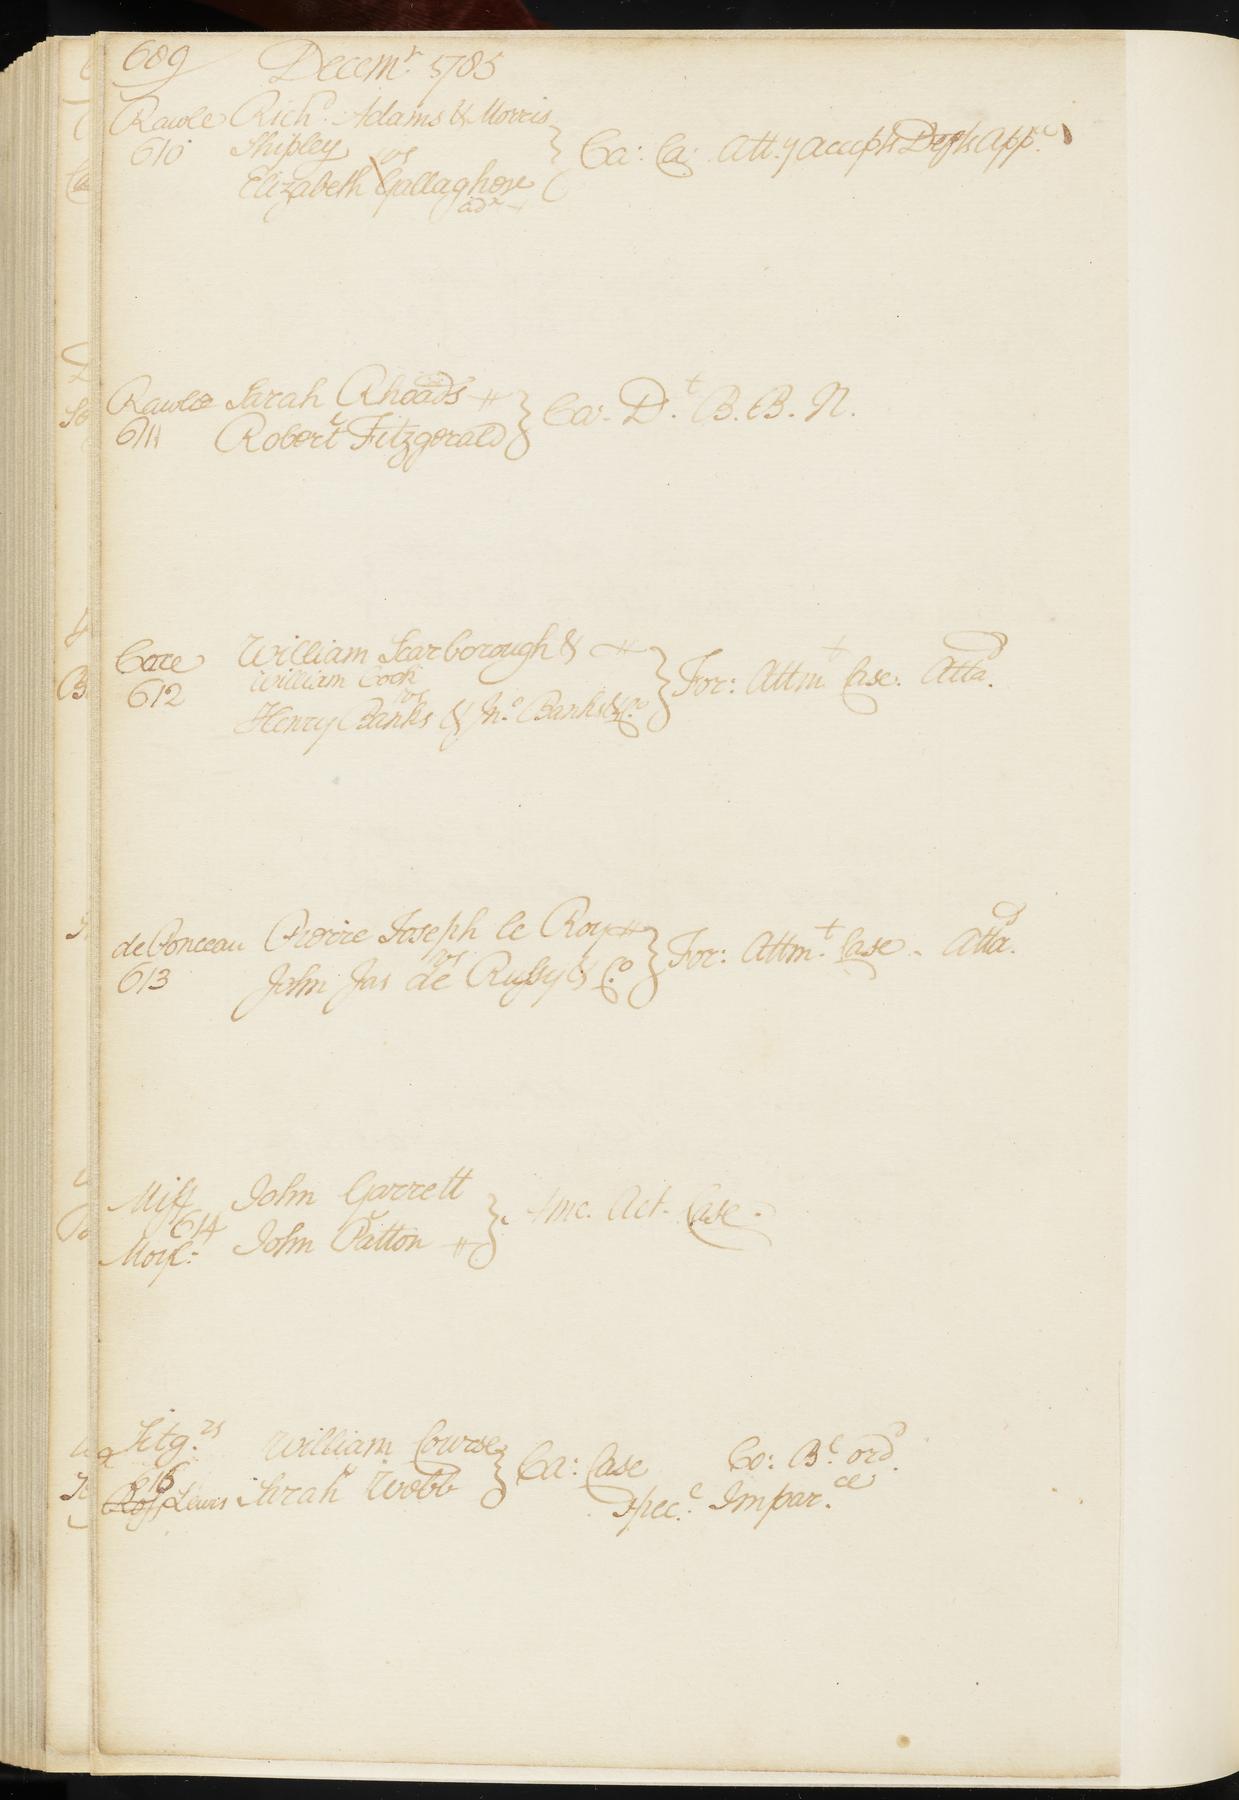 689 Decemr. 1785
Rawle Richd. Adams & Morris
610 Shipley vs
Elizabeth Gallagher
adx
Ca: Ca: Att.y accepts Defts appce
Rawle Sarah Rhoads
611 Robert Fitzgerald
Ca. Dt. B. B. N.
Coxe William Scarborough &
612 William Cook
vs
Henry Banks & Jno. Banks & Co
For: Attmt Case. Attad.
de Ponceau Pierre Joseph le Roy
vs
613 John Jas de Russy & Co
For: Attmt. Case - Attad.
Miff John Garrett
614
John Patton
Amc. Act. Case.
Fitg.rs William Course
615
Lewis Sarah Webb
Ca: Case Co: Bl. ord.
Specl. Imparce